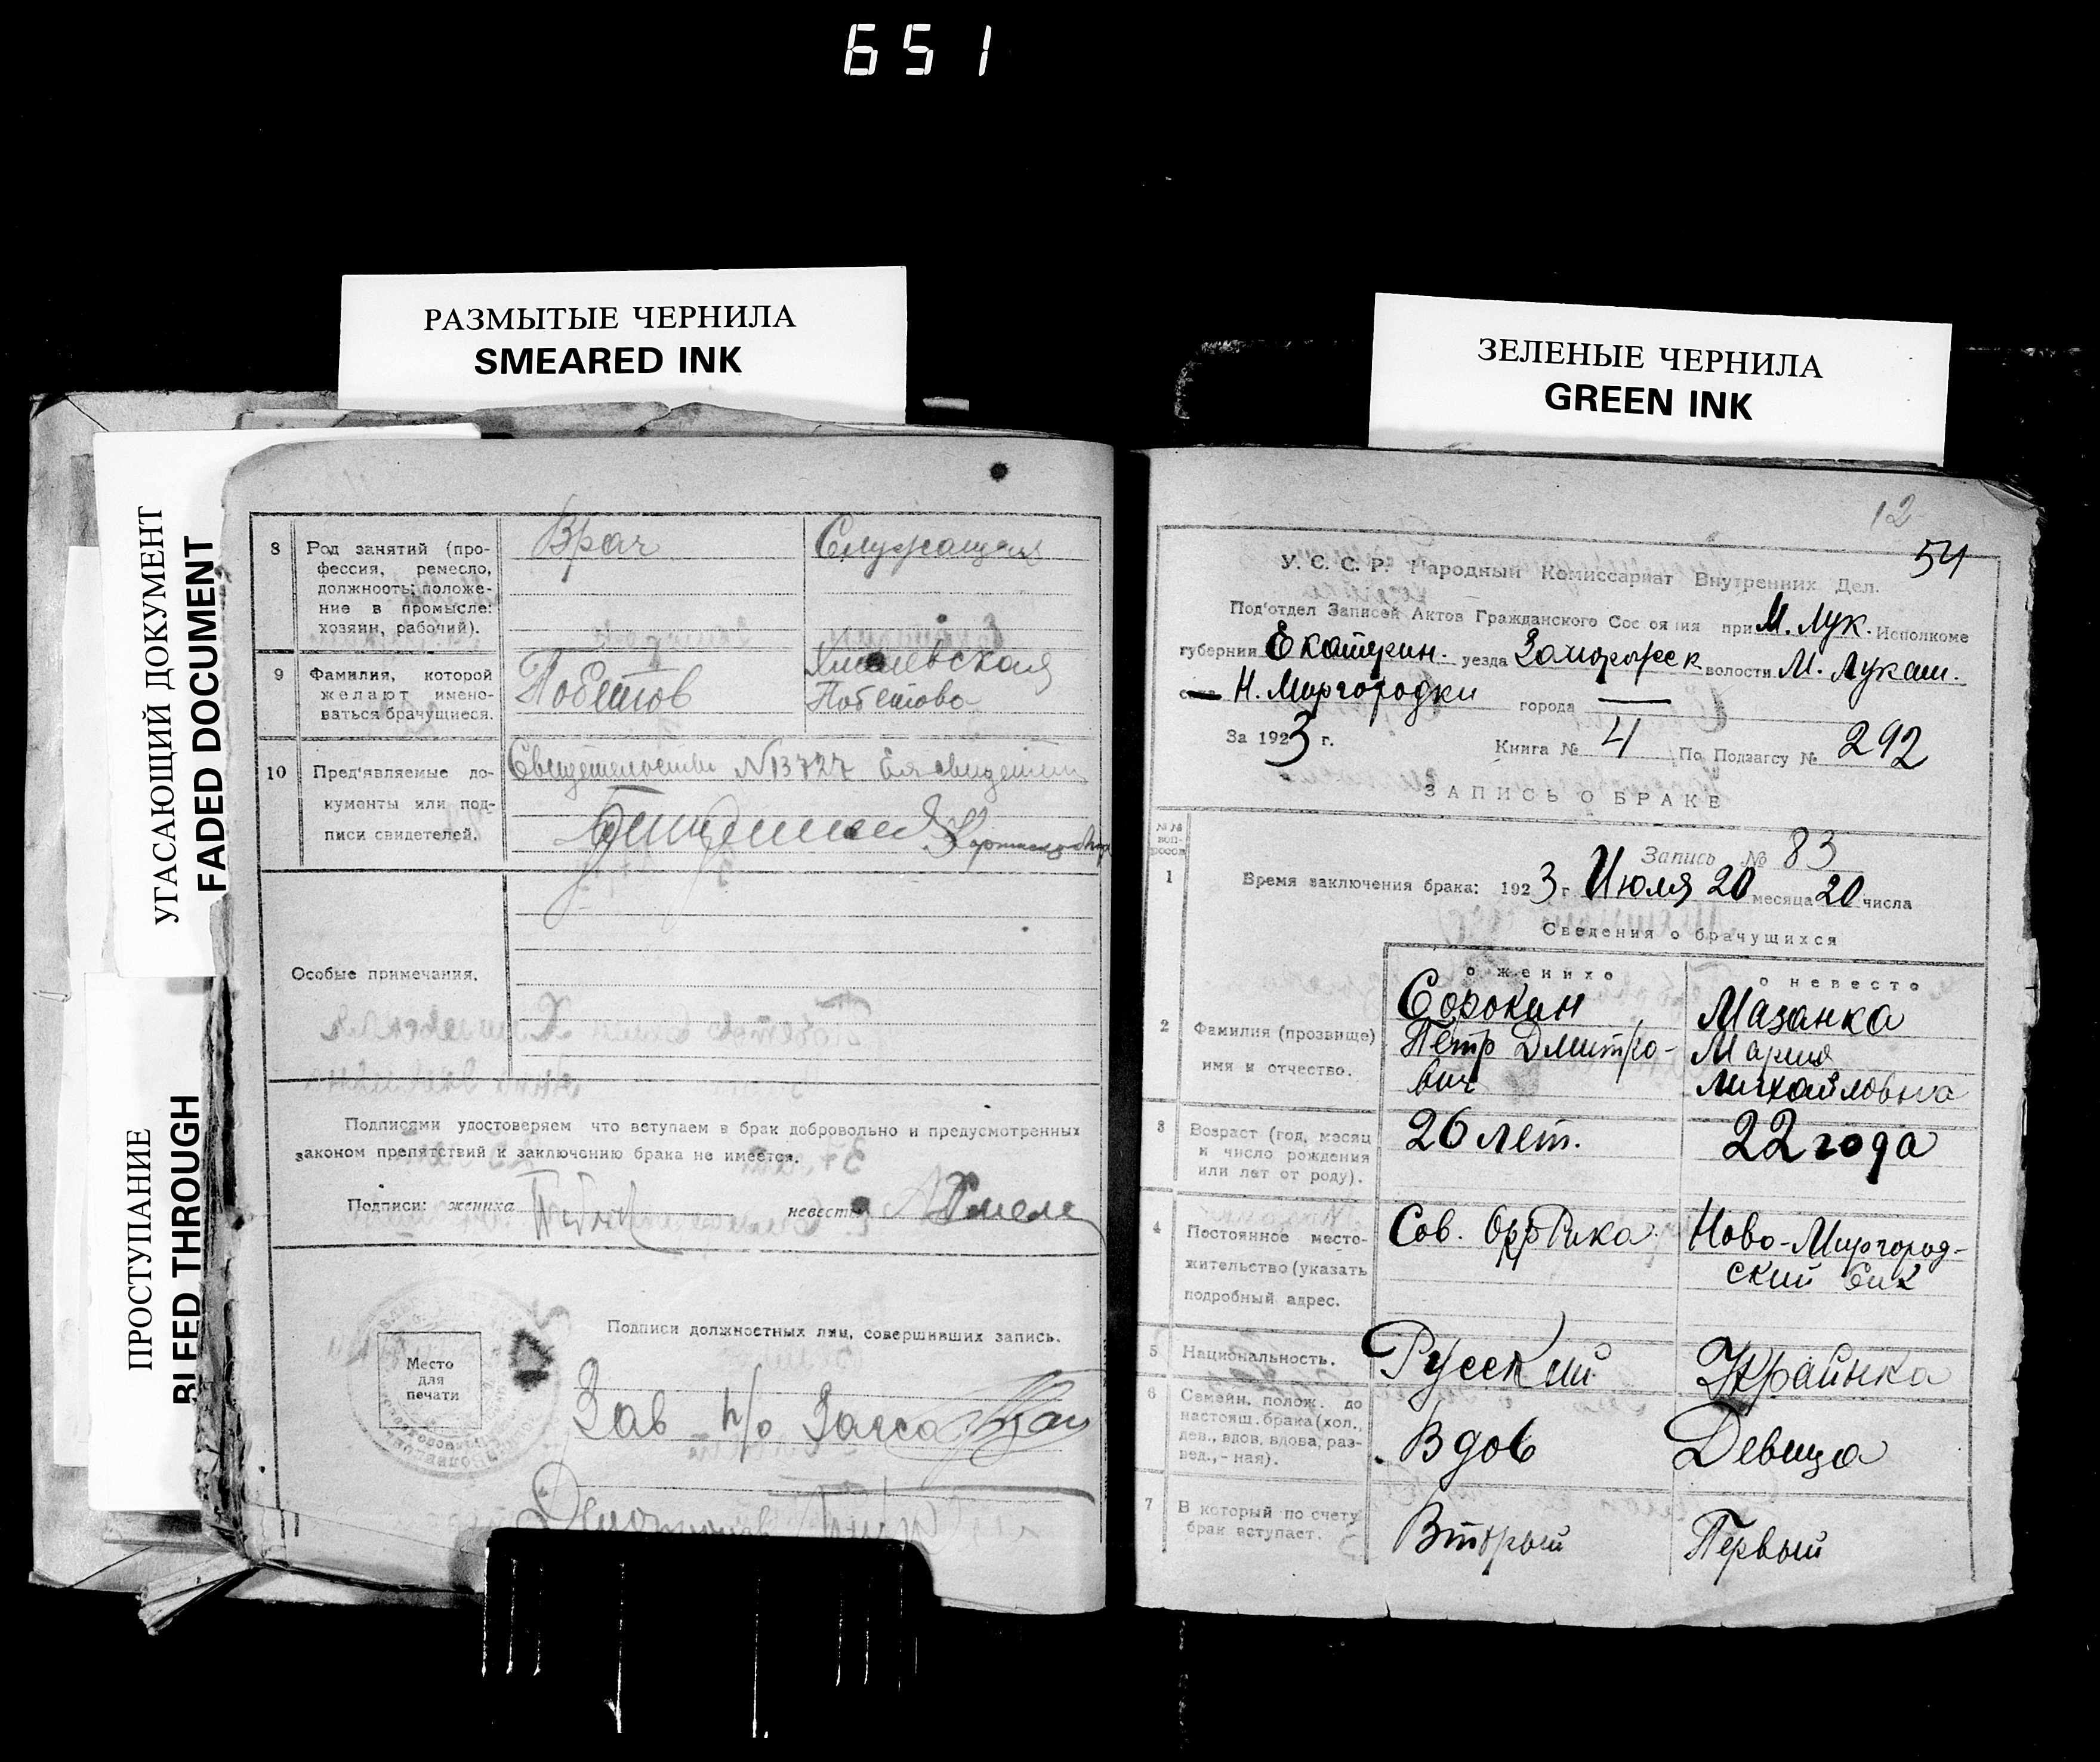 651
РАЗМЫТЫЕ ЧЕРНИЛА
SMEARED INK
ЗЕЛЕНЫЕ ЧЕРНИЛА
GREEN INK
УГАСАЮЩИЙ ДОКУМЕНТ
FADED DOCUMENT
ПРОСТУПАНИЕ
BLEED THROUGH
8 Род занятий (про-
фессия, ремесло,
должность; положе-
ние в промысле:
хозяин, рабочий).
Врач
Служащая
9 Фамилия, которой
желают имено-
ваться брачущиеся.
Побетов
Хмелевская
Побетова
10 Пред'являемые до-
кументы или под-
писи свидетелей.
Свидетельство N13727
Особые примечания.
Подписями удостоверяем что вступаем в брак добровольно и предусмотренных
законом препятствий к заключению брака не имеется.
Подписи: жениха невесты Хмеле
Подписи должностных лиц, совершивших запись.
Место
для
печати
Зав п/о Загса
12
54
У. С. С. Р. Народный Комиссариат Внутренних Дел.
Под'отдел Записей Актов Гражданского Состояния при М. Лук. Исполкоме
губернии Екатерин. уезда волости М. Лукаш.
села Н. Миргородки города —
За 1923 г. Книга № 4 По Подзагсу № 292
ЗАПИСЬ О БРАКЕ
№№
воп-
росов
Запись № 83
1 Время заключения брака: 1923 г. Июля 20 месяца 20 числа
Сведения о брачущихся
о женихе
о невесте
2 Фамилия (прозвище)
имя и отчество.
Сорокин
Петр Дмитро-
вич
Мазанка
Мария
Михайловна
3 Возраст (год, месяц
и число рождения
или лет от роду).
26 лет.
22 года
4 Постоянное место-
жительство (указать
подробный адрес.
Сов.
Ново-Миргород-
ский
5 Национальность.
Русский
Украинка
6 Семейн. полож. до
настоящ. брака (хол.,
дев., вдов, вдова, раз-
вед., - ная).
Вдов
Девица
7 В который по счету
брак вступает.
Вторый
Первый